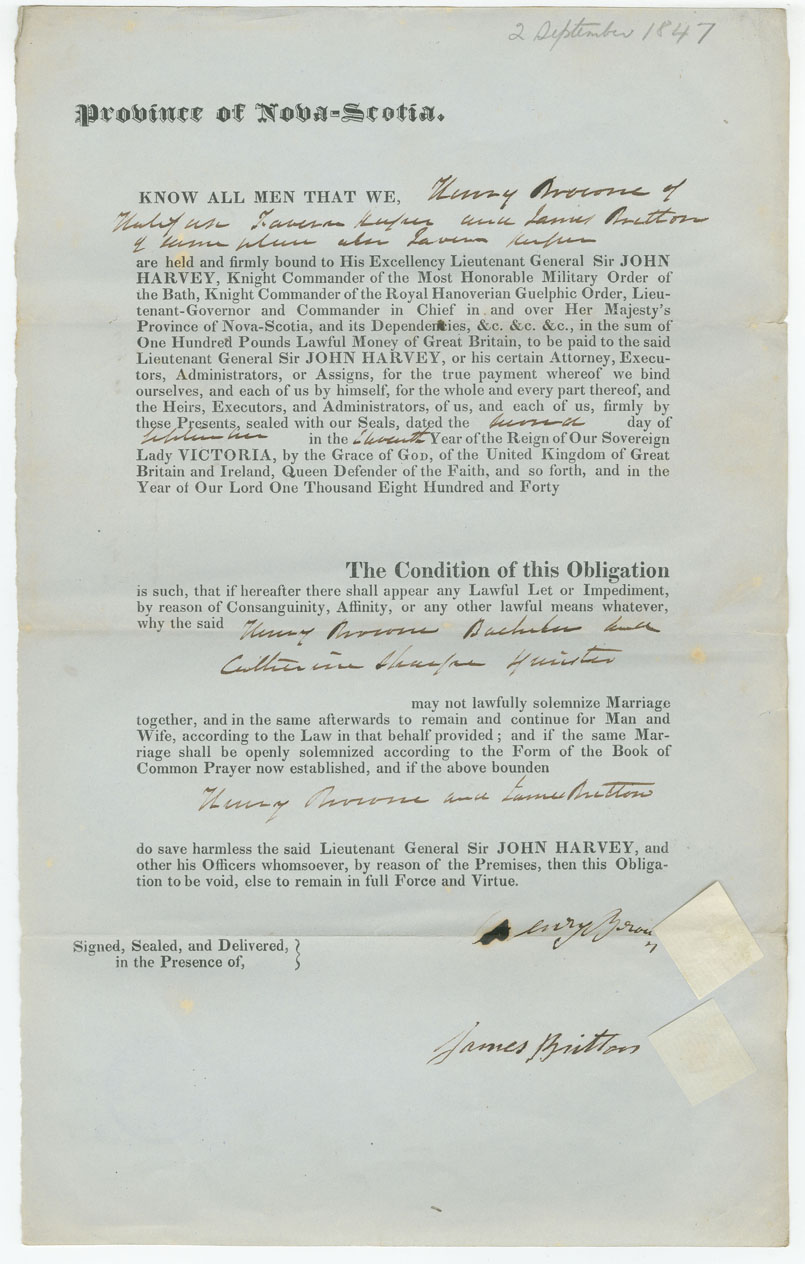 2 September 1847
Province of Nova-Scotia.
KNOW ALL MEN THAT WE, Henry Browne of
Halifax Tavern Keeper and James Britton
of same place also Tavern Keeper
are held and firmly bound to His Excellency Lieutenant General Sir JOHN
HARVEY, Knight Commander of the Most Honorable Military Order of
the Bath, Knight Commander of the Royal Hanoverian Guelphic Order, Lieu-
tenant-Governor and Commander in Chief in and over Her Majesty's
Province of Nova-Scotia, and its Dependencies, &c. &c. &c., in the sum of
One Hundred Pounds Lawful Money of Great Britain, to be paid to the said
Lieutenant General Sir JOHN HARVEY, or his certain Attorney, Execu-
tors, Administrators, or Assigns, for the true payment whereof we bind
ourselves, and each of us by himself, for the whole and every part thereof, and
the Heirs, Executors, and Administrators, of us, and each of us, firmly by
these Presents, sealed with our Seals, dated the second day of
September in the eleventh Year of the Reign of Our Sovereign
Lady VICTORIA, by the Grace of GOD, of the United Kingdom of Great
Britain and Ireland, Queen Defender of the Faith, and so forth, and in the
Year of Our Lord One Thousand Eight Hundred and Forty
The Condition of this Obligation
is such, that if hereafter there shall appear any Lawful Let or Impediment,
by reason of Consanguinity, Affinity, or any other lawful means whatever,
why the said Henry Browne Bachelor and
Catherine Sharpe Spinster
may not lawfully solemnize Marriage
together, and in the same afterwards to remain and continue for Man and
Wife, according to the Law in that behalf provided ; and if the same Mar-
riage shall be openly solemnized according to the Form of the Book of
Common Prayer now established, and if the above bounden
Henry Browne and James Britton
do save harmless the said Lieutenant General Sir JOHN HARVEY, and
other his Officers whomsoever, by reason of the Premises, then this Obliga-
tion to be void, else to remain in full Force and Virtue.
Henry Brown
Signed, Sealed, and Delivered,
in the Presence of,
James Britton